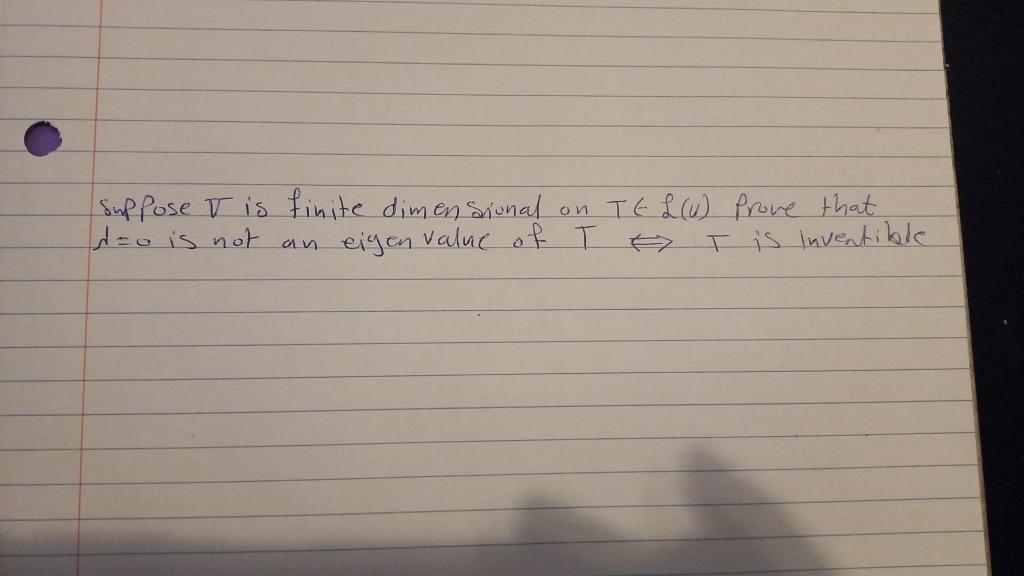 Suppose V is finite dimensional on T ∈ L(V). Prove that
λ=0 is not an eigen value of T ⟺ T is Inventible